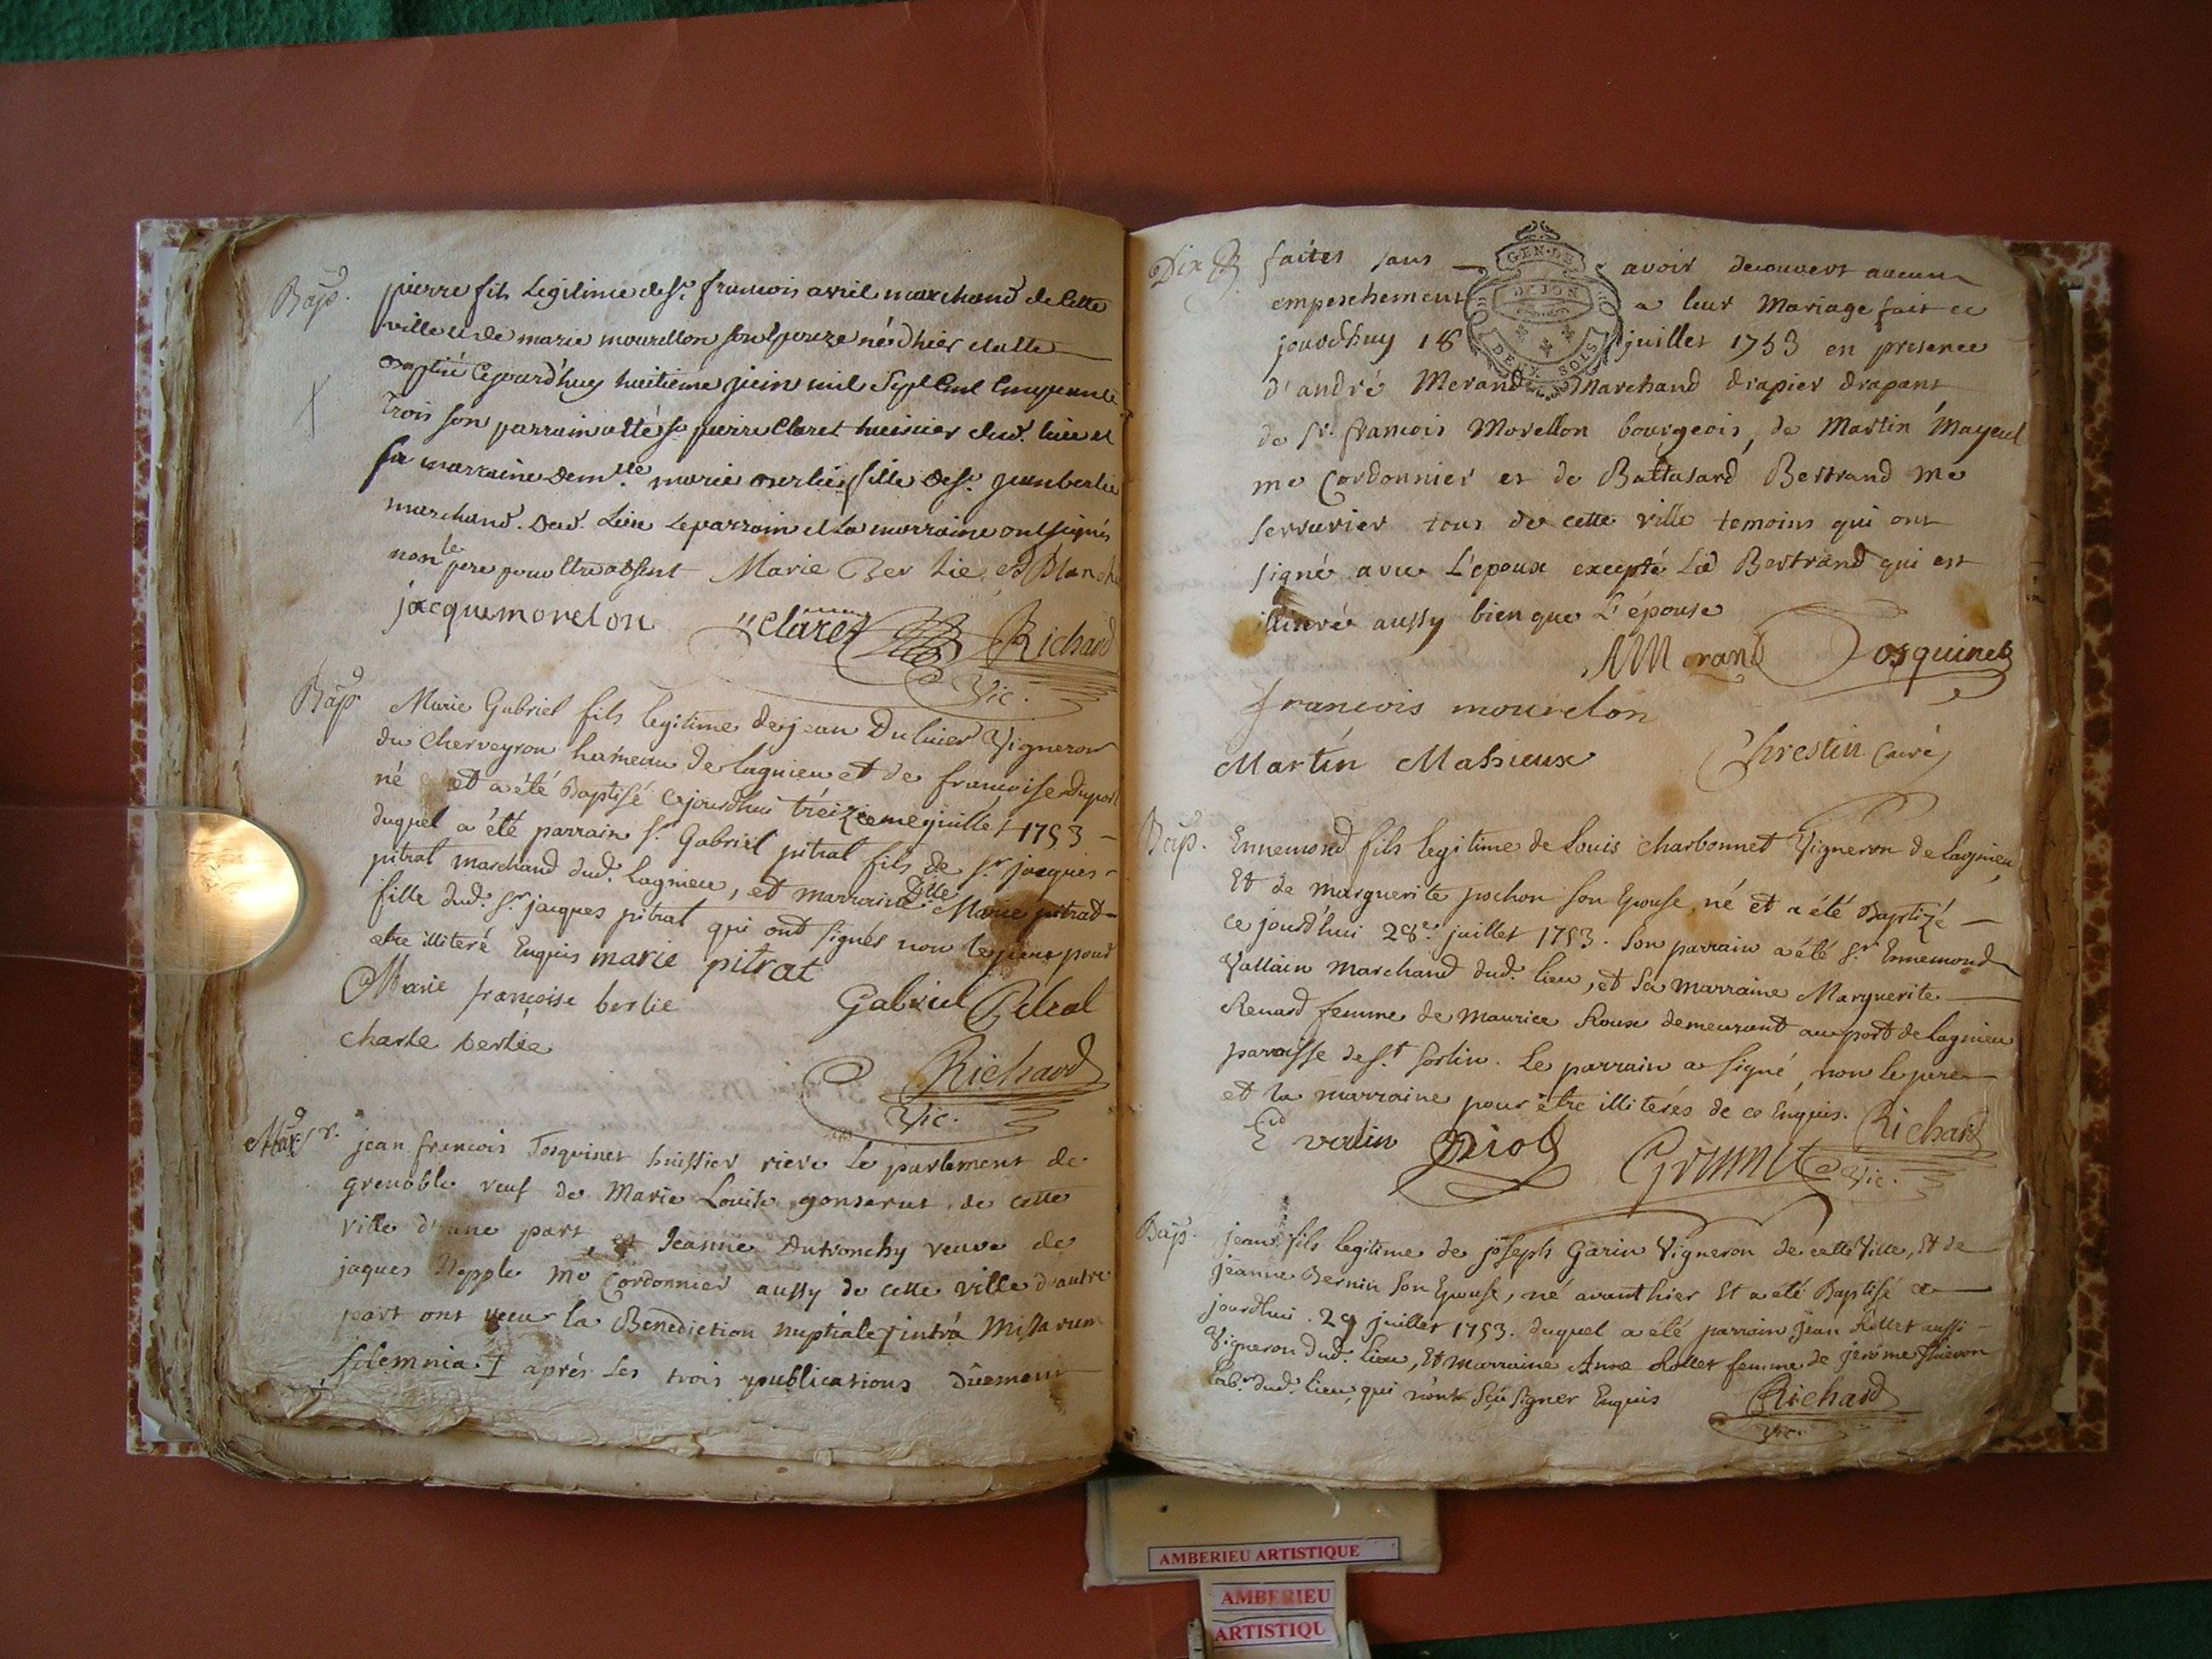 Bap.
pierre fils Legitime de Sr. francois avril marchand de Cette
ville et de marie mourellon son Epouze né d'hier et atte
Baptisé Cejourd'huy huitieme juin mil Sept Cent Cinquante
Trois son parrain atté Sr pierre Claret huissier dud. lieu et
Sa marraine Demlle marie berlie fille de Sr.
marchand. Dud. Lieu Le parrain et La marraine ont signés
non le pere pour Etre absent Marie Berlie
jacque morelon Claret Richard
Vic.
Bap.
Marie Gabriel fils legitime de jean Dulcier Vigneron
du Cherveyron hameau de lagnieu et de francoise Duport
né et a été Baptisé Cejourdhui tréizieme juillet 1753 -
duquel a été parrain Sr. Gabriel pitrat fils de Sr. jacques
pitrat marchand dud. lagnieu, et marraine Dlle Marie pitrat
fille dud. Sr. jacques pitrat qui ont signés non le pere pour
etre illiteré Enquis marie pitrat
Marie françoise berlie Gabriel Pitrat
charle berlie
Richard
Vic.
Mar.
jean francois Tosquinet huissier riere le parlement de
grenoble veuf de Marie Louise gonserut de cette
ville d'une part, et Jeanne Dutronchy veuve de
jaques Nepple Me Cordonnier aussy de cette ville d'autre
part ont recu la Benediction nuptiale intrá Missarum
solemnia. aprés les trois publications Dûement
Dix
faites sans avoir decouvert aucun
GEN. DE
DIJON
DEUX SOLS
empeschement a leur Mariage fait ce
jourdhuy 18 juillet 1753 en presence
d'andré Merand Marchand drapier drapant
de Sr. francois Morellon bourgeois, de Martin Mayeul
me Cordonnier et de Baltasard Bertrand Me
serrurier tous de cette ville temoins qui ont
signé avec L'epoux excepté Led Bertrand qui est
illitéré aussy bien que L'épouse
AM erand Tosquinet
francois mourelon
Martin Mahieux Chrestin Curé
Bap.
Ennemond fils legitime de Louis Charbonnet Vigneron de Lagnieu,
Et de marguerite pochon son Epouse, né et a été Baptizé
ce jourd'hui 28e. juillet 1753. Son parrain a été Sr. Ennemond
Vallain marchand dud. lieu, et Sa marraine Marguerite
Renard femme de maurice Roux demeurant au port de lagnieu
paroisse de St. Sorlin. Le parrain a signé, non le pere
et la marraine pour être illiterés de ce Enquis. Richard
Vic.
Ed valin
Bap.
jean fils legitime de joseph Garin Vigneron de cette Ville, Et de
jeanne Bernin Son Epouse, né avant hier Et a été Baptisé ce
jourdhui . 29 juillet 1753. duquel a été parrain jean Rollet aussi
Vigneron dud. lieu, Et marraine Anne Rollet femme de jerôme Thievon
lab. dud. lieu, qui n'ont sçû signer Enquis Richard
Vic.
AMBERIEU ARTISTIQUE
AMBERIEU
ARTISTIQU